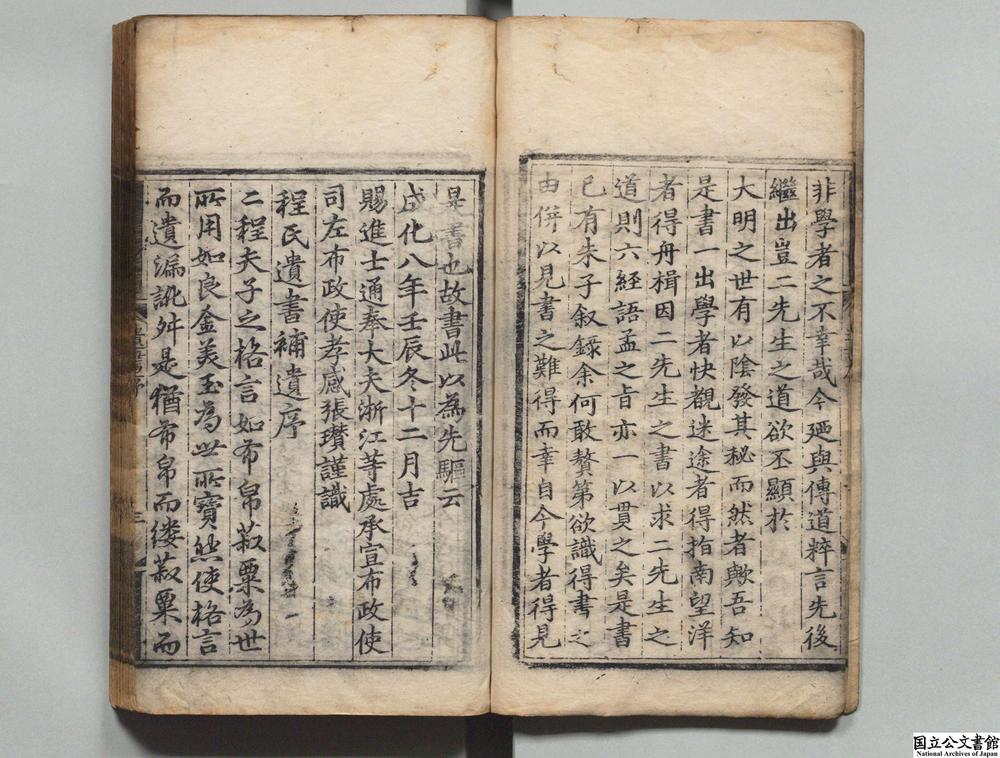 非學者之不幸哉今廼與傳道粹言先後
繼出豈二先生之道欲丕顯於
大明之世有以陰發其秘而然者歟吾知
是書一出學者快覩迷途者得指南望洋
者得舟楫因二先生之書以求二先生之
道則六経語孟之旨亦一以貫之矣是書
已有朱子叙録余何敢贅第欲識得書之
由併以見書之難得而幸自今學者得見
是書也故書此以為先驅云
成化八年壬辰冬十二月吉
賜進士通奉大夫浙江等處承宣布政使
司左布政使孝感張瓚謹識
程氏遺書補遺序
二程夫子之格言如布帛菽粟為世
所用如良金美玉為世所寶然使格言
而遺漏訛舛是猶布帛而縷菽粟而
国立公文書館
National Archives of Japan